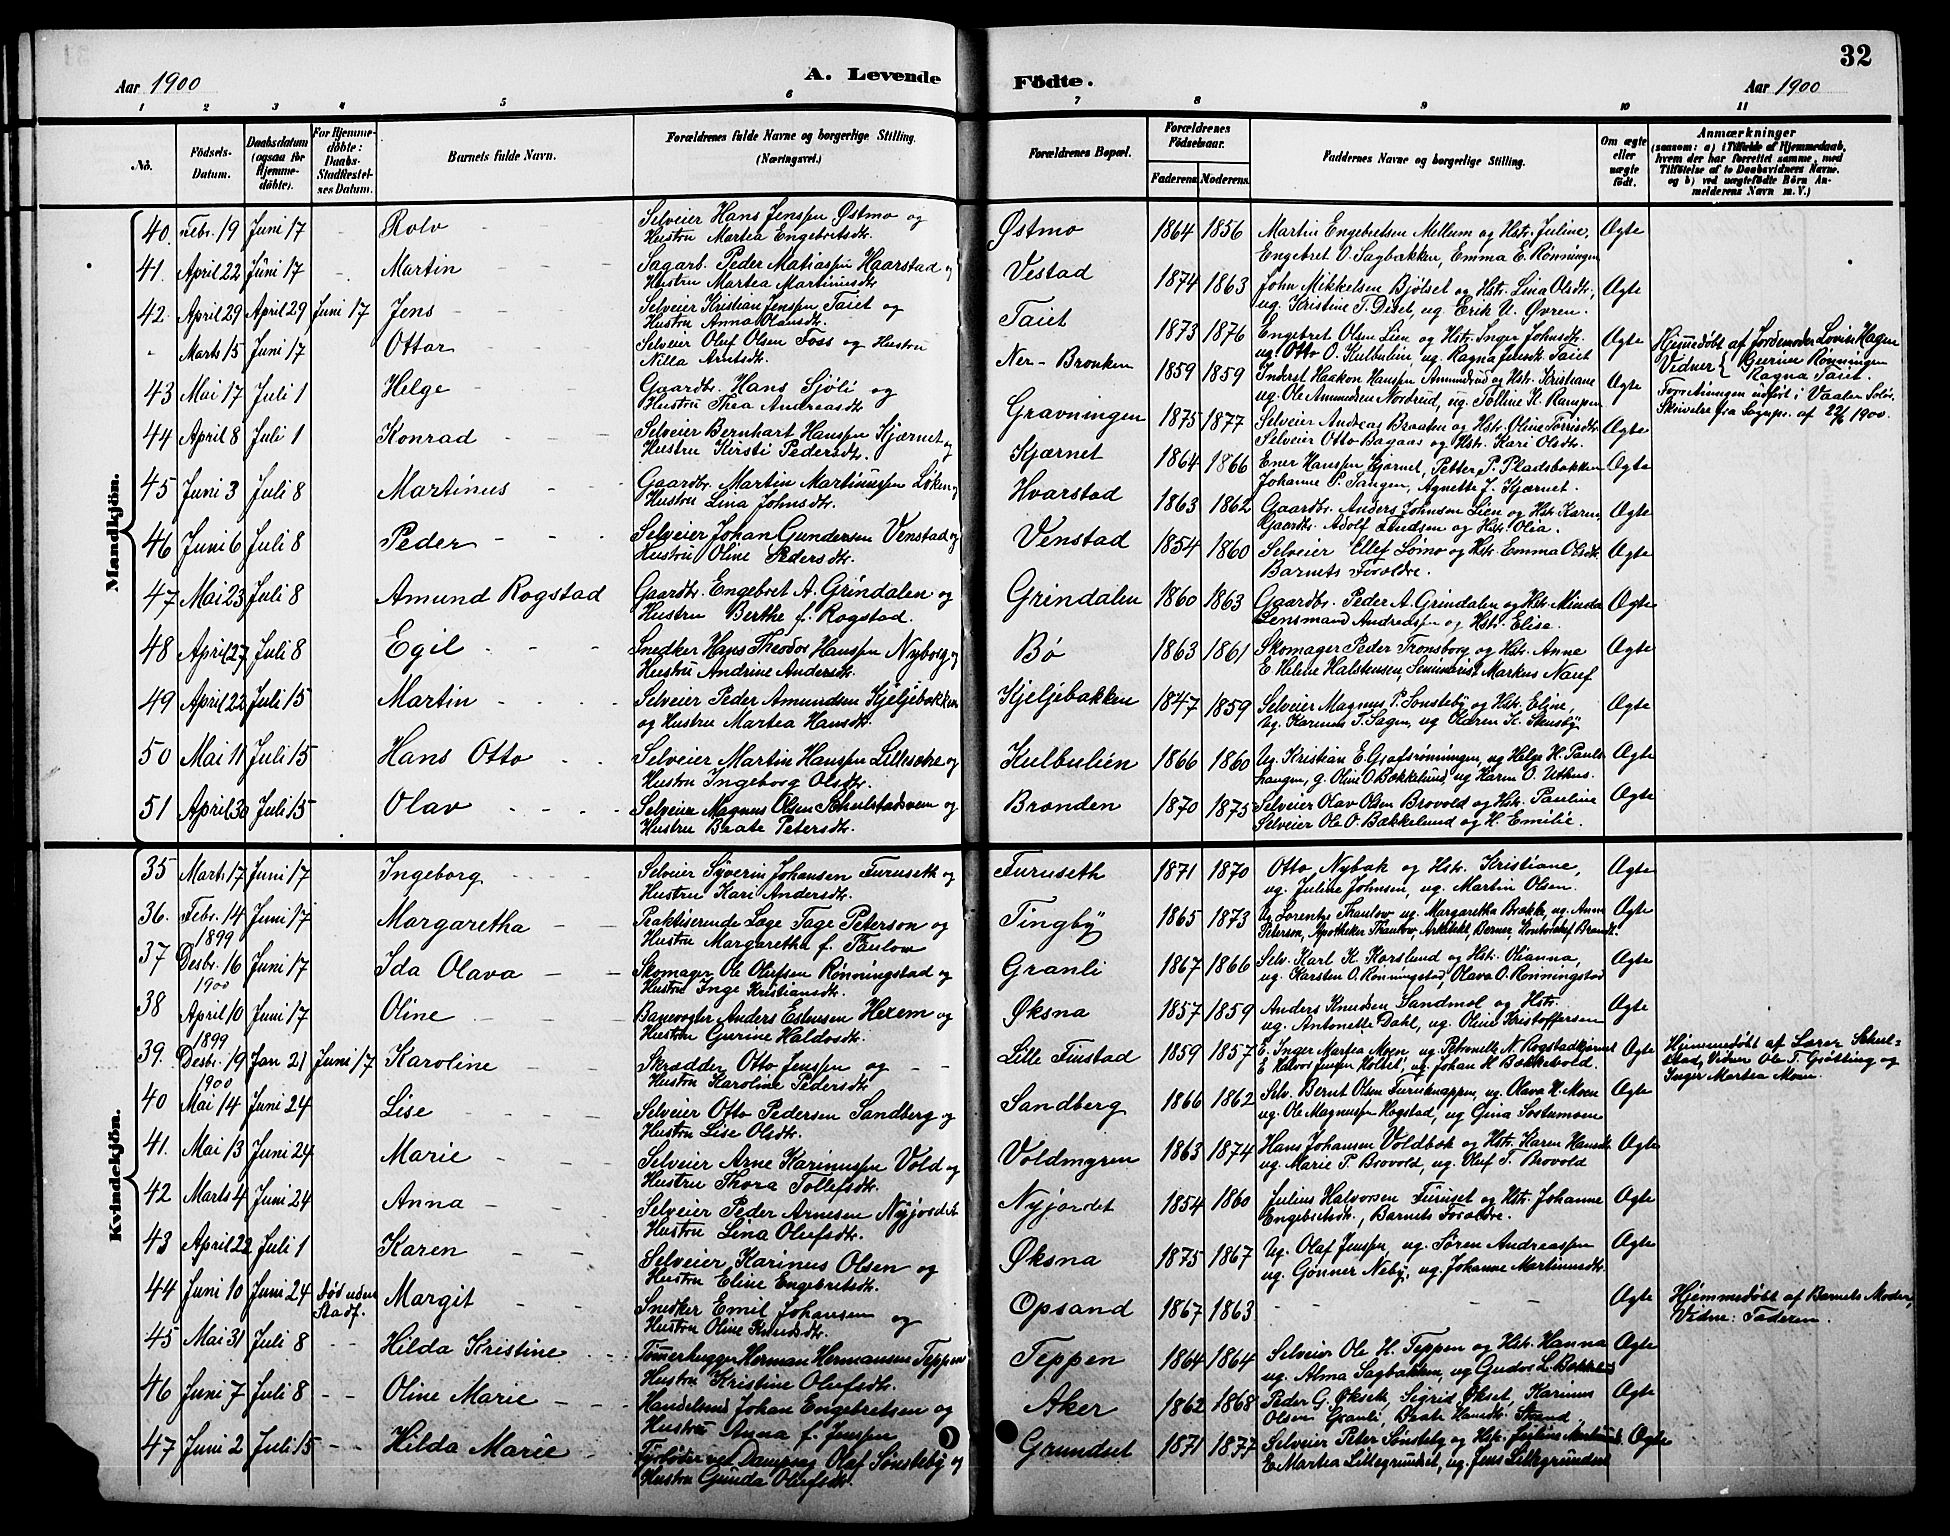 Aar 1900
A. Levende
Födte.
Aar 1900
32
1 2 3 4 5 6 7 8 9 10 11
No.
Födsels-Datum.
Daabsdatum (ogsaa for Hjemme-döbte).
For Hjemme-döbte: Daabs-Stadfæstelses Datum.
Barnets fulde Navn.
Forældrenes fulde Navne og borgerlige Stilling. (Næringsvei.)
Forældrenes Bopæl.
Forældrenes Födselsaar.
Faderens. Moderens.
Faddernes Navne og borgerlige Stilling.
Om ægte eller uægte födt.
Anmærkninger
(saasom: a) i Tilfælde af Hjemmedaab, hvem der har forrettet samme, med Tilföielse af to Daabsvidners Navne, og b) ved uægtefödte Börn Anmelderens Navn m. V.)
Mandkjön.
40. Febr. 19 Juni 17 - Rolv Selveier Hans Jenssen Østmo og
Hustru Martea Engebretsdtr. Østmo 1864 1856 Martin Engebretsen Mellum og Hstr. Juline,
Engebret O. Sagbakken, Emma E. Rønningen Ægte
41. April 22 Juni 17 - Martin Sagarb. Peder Matiassen Haarstad og
Hustru Martea Martinusdtr Vestad 1874 1863 John Mikkelsen Bjølset og Hstr. Lina Olsdtr.,
ug. Kristine T. Diset, ug. Erik U. Øvren. Ægte
42. April 29 April 29 Juni 17 Jens Selveier Kristian Jenssen Taiet og
Hustru Anna Olausdtr. Taiet 1873 1876 Engebret Olsen Lien og Hstr. Inger Johnsdtr.
ug. Otto O. Kulbulien ug. Ragna Jensdtr. Taiet Ægte
Hjemedøbt af Jordemoder Lovise Hagen
Vidner { Gurine Rønningen
Ragna Taiet.
" Marts 15 Juni 17 Ottar Selveier Oluf Olsen Foss og Hustru
Nilla Arntsdtr. Ner-Bronken 1859 1859 Inderst Haakon Hanssen Amundrud og Hstr. Kristiane
ug. Ole Amundsen Nordreid, ug. Tolline K. Rampen Ægte
Forretningen udført i Vaaler Solør.
Skrivelse fra Sognepr. af 22/6 1900.
43 Mai 17 Juli 1 Helge Gaardbr. Hans Sjöli og
Hustru Thea Andreasdtr. Gravningen 1875 1877 Selveier Andreas Braaten og Hstr. Oline Torrisdtr.
Selveier Otto Bagaas og Hstr. Kari Olsdtr. Ægte
44 April 8 Juli 1 Konrad Selveier Bernhart Hanssen Kjærnet og
Hustru Kirsti Pedersdtr. Kjærnet 1864 1866 Ener Hanssen Kjærnet, Petter P. Pladsbakken
Johanne P. Sangen, Agnette J. Kjærnet. Ægte
45 Juni 3 Juli 8 Martinus Gaardbr. Martin Martinussen Løken og
Hustru Lina Johnsdtr. Hvarstad 1863 1862 Gaardbr. Anders Johnsen Lien og Hstr. Karen,
Gaardbr. Adolf Knudsen og Hstr. Olia. Ægte
46 Juni 6 Juli 8 Peder Selveier Johan Gundersen Venstad og
Hustru Oline Pedersdtr. Venstad 1854 1860 Selveier Ellef Lømo og Hstr. Emma Olsdtr.
Barnets Forældre. Ægte
47 Mai 23 Juli 8 Amund Rogstad Gaardbr. Engebret A. Grindalen og
Hustru Berthe f. Rogstad. Grindalen 1860 1863 Gaardbr. Peder A. Grindalen og Hstr. Minda
Lensmand Andreassen og Hstr. Elise. Ægte
48 April 27 Juli 8 Egil Snedker Hans Theodor Hanssen Nyborg og
Hustru Andrine Andersdtr. Bø 1863 1861 Skomager Peder Tronsborg og Hstr. Anne
E. Helene Halstensen, Seminarist Markus Nauf Ægte
49 April 22 Juli 15 Martin Selveier Peder Amundsen Kjeljebakken
og Hustru Martea Hansdtr. Kjeljebakken 1847 1859 Selveier Magnus P. Sønsteby og Hstr. Eline,
Ug. Karinus P. Sagen, ug Karen K. Skusby Ægte
50 Mai 11 Juli 15 Hans Otto Selveier Martin Hanssen Lillesætre og
Hustru Ingeborg Olsdtr. Kulbulien 1866 1860 Ug. Kristian E. Grafsrønningen, ug Helge H. Pauls-
haugen, g. Oline O. Bækkelund, ug Karen O. Uthus. Ægte
51 April 30 Juli 15 Olav Selveier Magnus Olsen Schulstadsveen og
Hustru Beate Petersdtr. Branden 1870 1875 Selveier Olav Olsen Brovold og Hstr. Pauline
Selveier Ole O. Bækkelund og H. Emilie. Ægte
Kvindekjön.
35 Marts 17 Juni 17 Ingeborg Selveier Syverin Johansen Furuseth og
Hustru Kari Andersdtr. Furuseth 1871 1870 Otto Nybak og Hstr. Kristiane,
ug. Juline Johnsen, ug. Martin Olsen. Ægte
36. Febr. 14 Juni 17 Margaretha Praktiserende Læge Tage Peterson og
Hustru Margaretha f. Taulow Tingby 1865 1873 Ug. Lorentze Thaulow, ug. Margaretha Brække, ug. Anna
Peterson, Apotheker Thaulow, Arkitekt Berner, Kontorchef Brandt. Ægte
37 1899 Desbr. 16 Juni 17 Ida Olava Skomager Ole Olufsen Rønningstad og
Hustru Inge Kristiansdtr. Granli 1867 1866 Selv. Karl K. Korslund og Hstr. Olianna,
ug. Karsten O. Rønningstad, Olava O. Rønningstad Ægte
38 1900 April 10 Juni 17 Oline Banevogter Anders Estensen Hexem og
Hustru Gurine Haldosdtr. Øksna 1857 1859 Anders Knudsen Sandmol og Hstr.
ug. Antonette Dahl, ug. Oline Kristoffersen Ægte
39. 1899 Desbr. 19 Jan 21 Juni 17 Karoline Skrædder Otto Jenssen og
Hustru Karoline Pedersdtr. Lille Finstad 1859 1857 E. Inger Martea Moen, ug. Petronelle N. Rogstadkjernet
E Halvor Jenssen Holtet, ug. Johan H. Bækkevold. Ægte
Hjemmedøbt af Lærer Schul-
stad, Vidner Ole T. Grøtting og
Inger Martea Moen.
40 1900 Mai 14 Juni 24 Lise Selveier Otto Pedersen Sandberg og
Hustru Lise Olsdtr. Sandberg 1866 1862 Selv. Bernt Olsen Furuknappen, ug Olava H. Moen
ug. Ole Magnussen Rogstad, ug Gina Tostumoen Ægte
41. Mai 13 Juni 24 Marie Selveier Arne Karinussen Vold og
Hustru Thora Tollefsdtr. Voldmyren 1863 1874 Hans Johansen Voldbak og Hstr. Karen Hansdtr.
ug. Marie P. Brovold, ug. Oluf T. Brovold Ægte
42 Marts 4 Juni 24 Anna Selveier Peder Arnesen Nyjordet
Hustru Lina Olufsdtr. Nyjordet 1854 1860 Julius Halvorsen Furuset og Hstr. Johanne
Engebretsdtr., Barnets Forældre. Ægte
43 April 22 Juli 1 Karen Selveier Karinus Olsen og
Hustru Eline Engebretsdtr. Øksna 1875 1867 Ug. Olaf Jenssen, ug. Søren Andreassen
ug. Gonner Neby, ug. Johanne Martinusdtr. Ægte
44 Juni 10 Juni 24 Død uden Stadf. Margit Snedker Emil Johansen og
Hustru Oline Knudsdtr. Opsand 1867 1863 - - - Ægte
Hjemmedøbt af Barnets Moder,
Vidne: Faderen.
45 Mai 31 Juli 8 - - Hilda Kristine Tømmerhugger Herman Hermansen Teppen
Hustru Kristine Olufsdtr. Teppen 1864 1864 Selveier Ole H. Teppen og Hstr. Hanna
ug. Alma Sagbakken, ug Gudor L. Bakkelund Ægte
46 Juni 7 Juli 8 - - Oline Marie Handelsmd. Johan Engebretsen og
Hustru Anna f. Jenssen Aker 1862 1868 Peder G. Økseth, Sigrid Økset, Karinus
Olsen Granli, Beate Hansdtr. Strand Ægte
47 Juni 2 Juli 15 - - Hilda Marie Fyrbøder ved Dampsag Olaf Sønsteby og
Hustru Gunda Olufsdtr. Grundset 1871 1877 Selveier Peter Sønsteby og Hstr.
E. Martea Lillegrundset, ug. Jens Lillegrundset Ægte